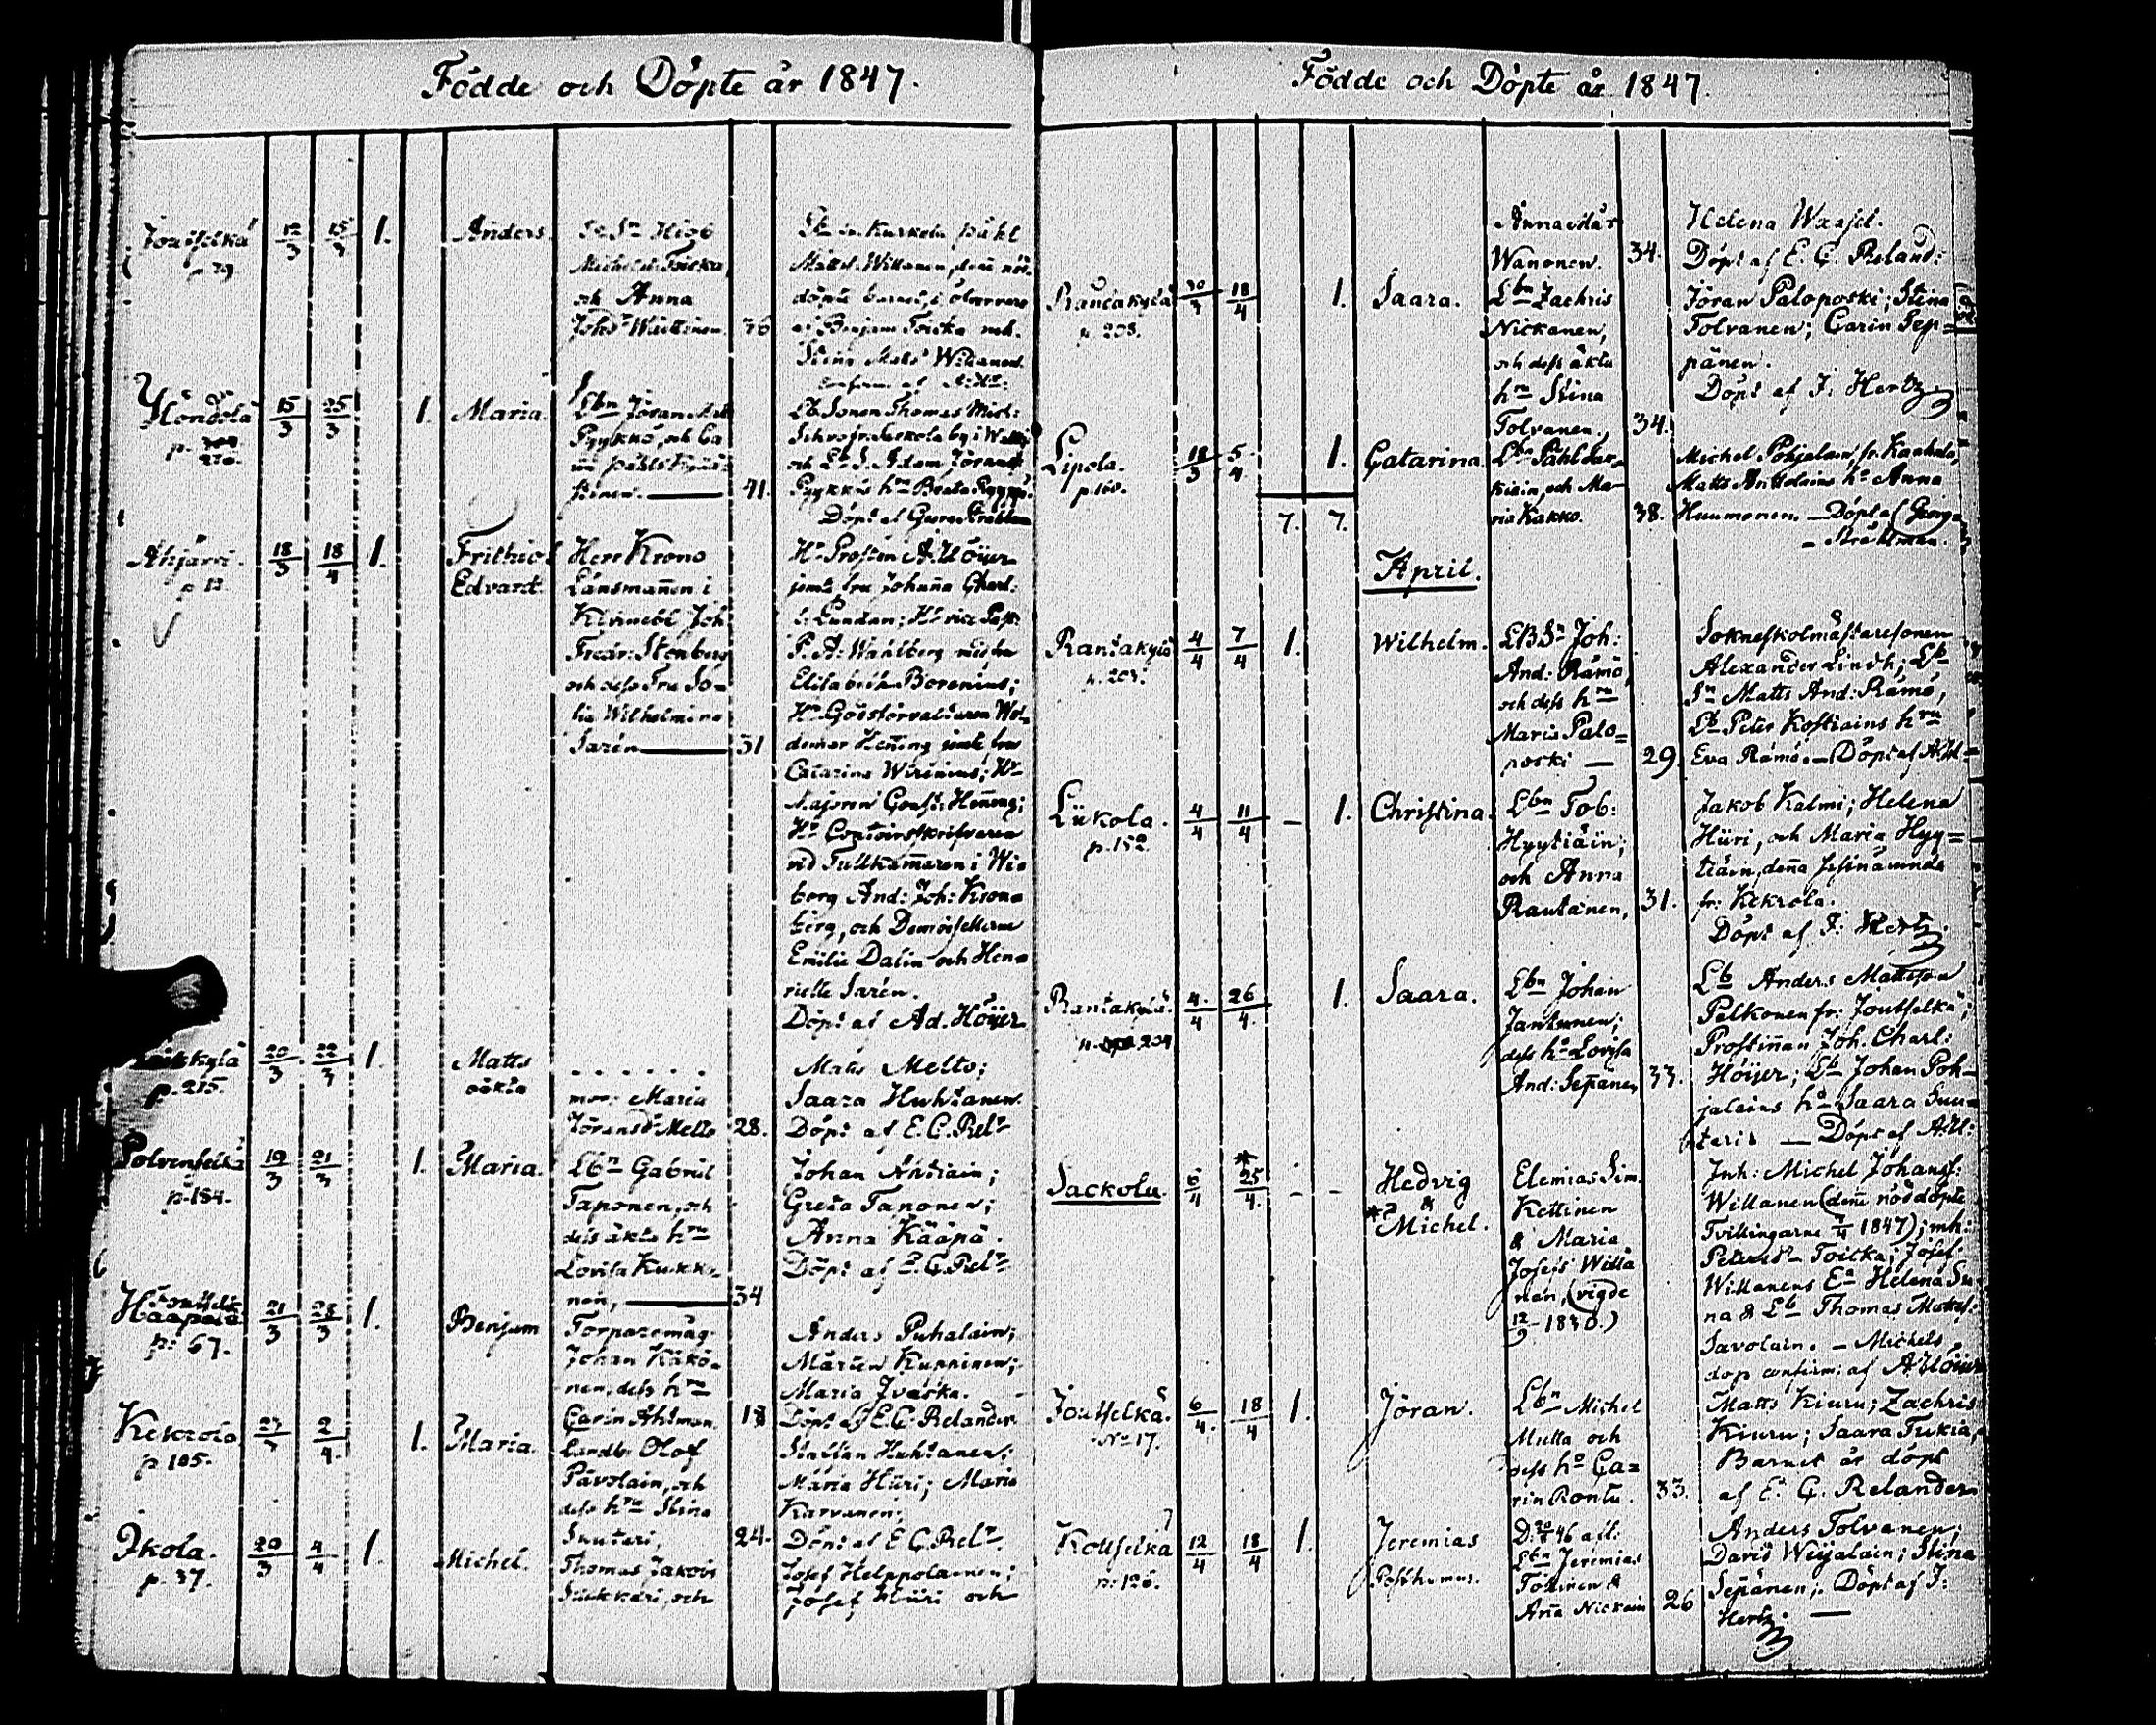 Födde och Döpte år 1847.
Joutselkä
p. 79.
12/3 15/3 1.
Anders.
Michelss Toicka,
och Anna
Johsdr
36
Matts Willanen, som nöd-
döpte barnet, i öfvervaro
af Benjam Toicka meh.
Stina Matts
confirm. af
p. 270.
15/3 25/3 1.
Maria.
Lbn Jöran
Pyykkö, och Ca
41.
Lb. Sonen Thomas Mich:
och Lb. S. Adam Jörans
Pyykkös hru Beata
Döpt af Georg Stråhlman
Ahjärvi.
p 13.
18/3 18/4 1.
Frithiof
Edvard.
Herr Krono
Länsmannen i
Kivinebb Joh:
Fredr: Stenberg
och dess Fru So-
fia Wilhelmina
Sarén
31
Hr Prosten A. Höijer
jemte fru Johanna Charl:
f. Lundan; Hr vice Past:
P. A: Wahlberg med fru
Elisabeth Borenius;
Hr Godsförvaltaren Wol-
demar Hening jemte fru
Catarina Wirenius; Hr
Majoren Gust: Hening;
Hr Contoirsskrifvaren
vid Tullkammaren i Wi-
borg And: Joh: Krone-
berg, och Demoisellerne
Emilie Dalin och Hen-
riette Sarén.
Döpt af Ad. Höijer
p. 215.
20/3 22/3 1.
Matts
oäkta
. . . . . .
mor: Maria
Jöransdr Melto
28.
Matts Melto;
Saara Huhtanen.
Döpt af E. G. Relr
Polvenselkä
p. 184.
19/3 21/3 1.
Maria.
Lbn Gabriel
Taponen, och
dess äkta hru
Lovisa Kukko-
nen,
34
Johan Ahtiain;
Greta Taponen;
Anna Kääpä.
Döpt af E. G. Relr
Haapala
p. 67.
21/3 28/3 1.
Benjam
Torparemåg.
Johan Käkö-
nen, dess hru
Carin Ahtman.
18
Anders Puhalain;
Mårten Kuppinen;
Maria Ivaska.
Döpt af E. G. Relander
Kekrola
p 105.
27/3 2/4. 1.
Maria.
Landbn Olof
Pavolain, och
dess hru Stina
Suutari,
24.
Staffan Huhtanen;
Maria Hüri; Maria
Karvanen;
Döpt af E. G. Relr.
Ikola.
p. 37.
20/3 4/4 1.
Michel.
Thomas Jakobs
Suikkari, och
Josef Helppolainen;
Josef Hüri och
Födde och Döpte år 1847.
Anna
Wanonen.
34.
Helena Waajel.
Döpt af E. G. Reland:
Rantakylä
p. 208.
30/3 18/4 1.
Saara.
Lbn Zachris
Nickanen,
och dess äkta
hru Stina
Tolvanen.
34.
Jöran Paloposki; Stina
Tolvanen; Carin Sep=
pänen.
Döpt af J: Hertz
Lipola.
p. 160.
18/3 5/4. 1.
Catarina.
Lbn Påhl
kiain, och Ma-
ria Kakko.
38.
Michel Pohjalain, fr. Kaukola,
Matts Anttolains hru Anna
Huumonen. — Döpt af Georg
Stråhlman.
7. 7.
April.
Rantakylä
p. 207.
4/4 7/4 1.
Wilhelm.
LBSn Joh:
And: Rämö,
och dess hru
Maria Palo=
poski —
29.
Sokneskolmästaresonen
Alexander Lindh; Lb
Sn Matts And: Rämö,
Lb Peter Kostiains hru
Eva Rämö. — Döpt af A. H=
Liikola.
p. 152.
4/4 11/4 — 1.
Christina.
Lbn Tob:
Hyytiäin;
och Anna
Rautanen,
31.
Jakob Kalmi; Helena
Hüri, och Maria Hyy=
tiäin, denna sistnämnda
fr: Kekrola.
Döpt af J: Hertz.
Rantakylä
p. 204
4/4 26/4. 1.
Saara.
Lbn Johan
Jantunen;
dess hu Lovisa
And: Sepänen
33.
Lb Anders Mattsson
Pelkonen fr: Joutselkä;
Prostinnan Joh. Charl:
Höijer; Lb Johan Poh-
jalains hu Saara Suu-
tari. — Döpt af A. H:
Sackola.
5/4 *25/4. – –
Hedvig
&
*Michel.
Elemias Sim.
Kettinen
& Maria
Josefs Willa
nen, (vigde
12/9 1830.)
Inh: Michel Johans:
Willanen (denne nöddöpte
Tvillingarne 7/4 1847); mh:
Petersdr Toicka; Josef:
Willanens Ea Helena Su-
na & Lb Thomas Matts:
Savolain. — Michels
dop confirm: af A. Höijer
Joutselkä.
No 17.
6/4. 18/4 1.
Jöran.
Lbn Michel
Mutta och
dess hu Ca=
rin Rontu.
33.
Matts Kiuru; Zachris
Kiuru; Saara Tukia,
Barnet är döpt
af E. G. Relander
Kottselkä
p. 126.
12/4 18/4 1.
Jeremias
Posthumus.
D. 20/8 46 afl:
Lbn Jeremias
Töttinen &
Anna Nickain
26
Anders Tolvanen;
David Weijalain; Stina
Sepänen; Döpt af J:
Hertz. —